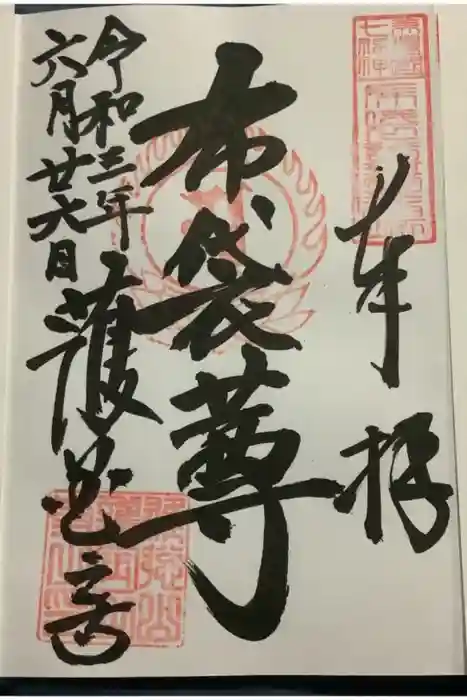 奉拝
布袋尊
令和三年
六月廿六日
護国之寺